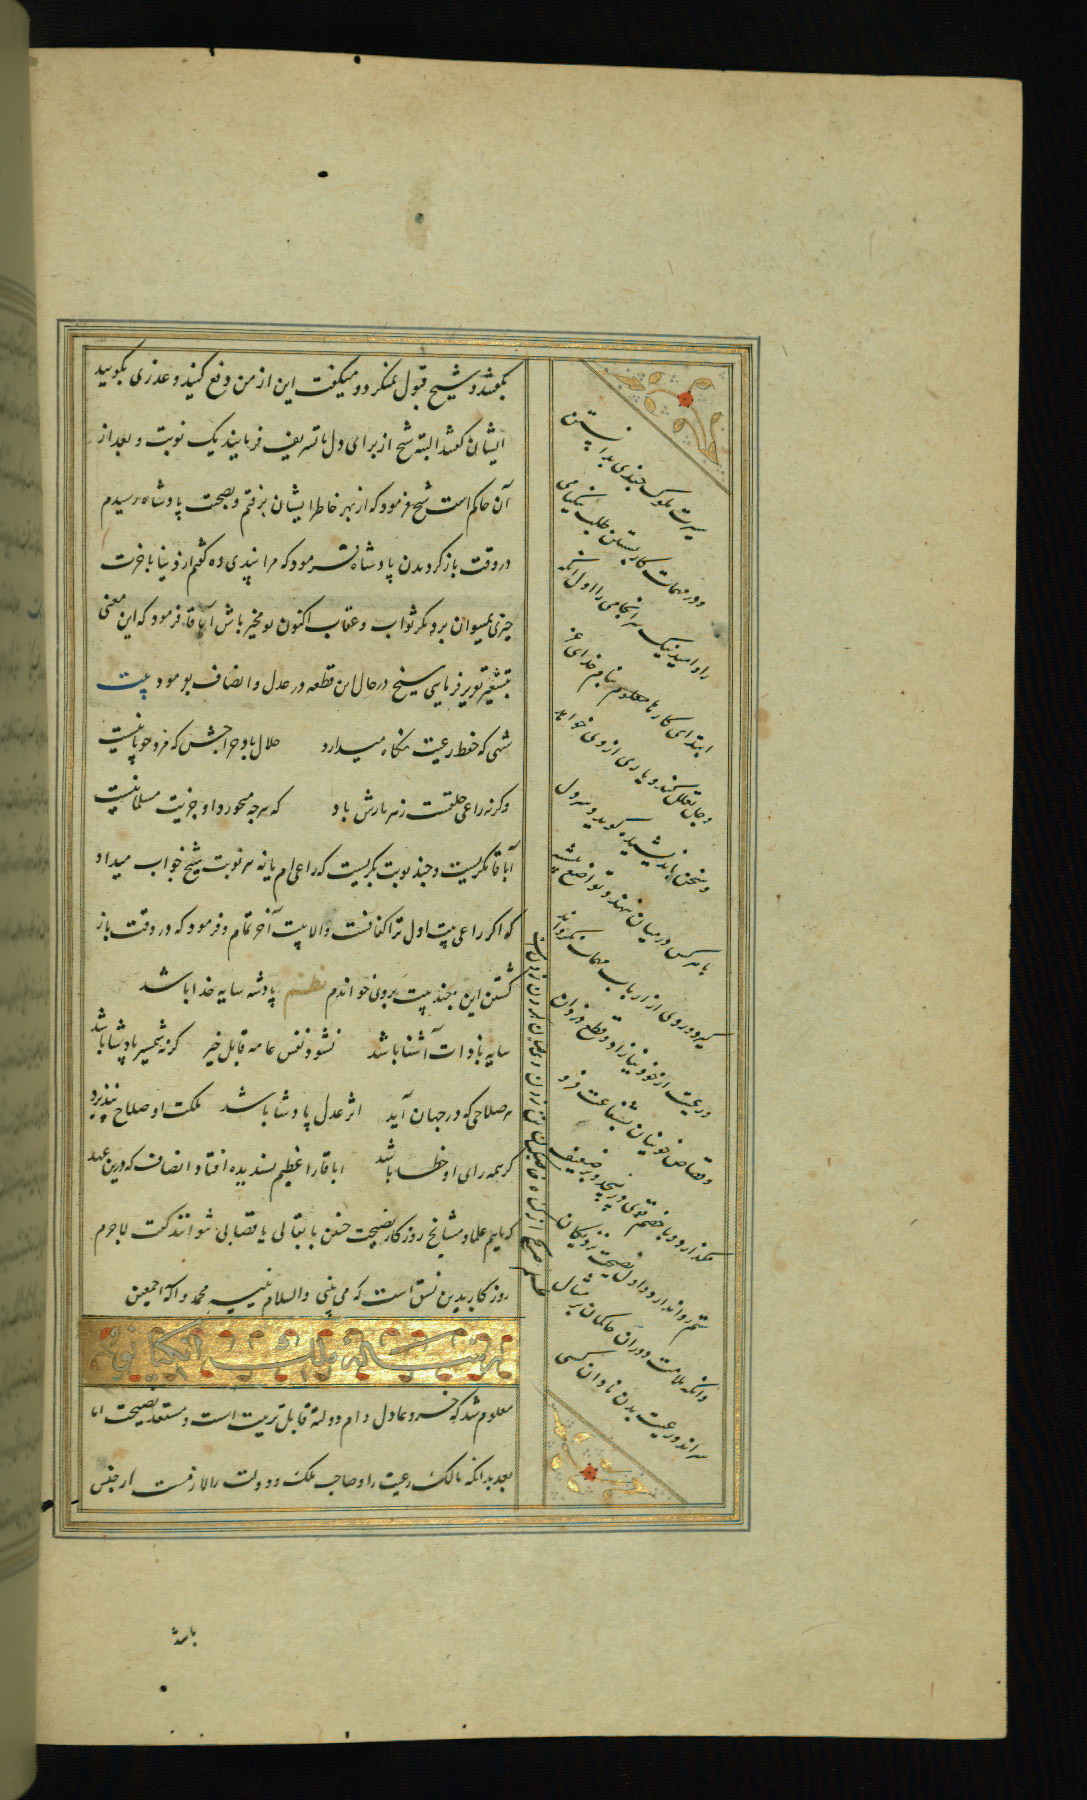 بگفتند و شیخ قبول نمیکرد و میگفت این از من دفع کنید و عذری بگویید
ایشان گفتند البته شیخ از برای دل ما تشریف فرمایند یک نوبت و بعد از
آن حاکم است شیخ فرمود که از بهر خاطر ایشان برفتم و بصحبت پادشاه رسیدم
در وقت باز کردیدن پادشاه فرمود که مرا پندی ده گفتم از دنیا بآخرت
چیزی نمیتوان برد مگر ثواب و عقاب اکنون تو مخیر باش آباقا فرمود که این معنی
بشعر تقریر فرمایی شیخ در حال این قطعه در عدل و انصاف بفرمود بیت
شهی که حفظ رعیت نگاه میدارد حلال باد خراجش که مزد چوپانیست
وگرنه راعی خلقست زهر مارش باد که هر چه میخورد او جزیت مسلمانیست
آباقا بگریست و چند نوبت بگریست که راعی ام یا نه هر نوبت شیخ جواب میداد
که اگر راعی بیت اول ترا کفافست والا بیت آخر تمام و فرمود که در وقت باز
گشتن این چند بیت بروی خواندم نظم پادشه سایه خدا باشد
سایه با ذات آشنا باشد نشود نفس عامه قابل خیر گرنه شمشیر پادشا باشد
هر صلاحی که در جهان آید اثر عدل پادشا باشد ملکت او صلاح نپذیرد
گر همه رای او خطا باشد اباقا را عظیم پسندیده افتاد و انصاف که درین عهد
که ماییم علما و مشایخ روزگار نصیحت چنین با بقالی یا قصابی نتوانند گفت لاجرم
روزگار بدین نسق است که می بینی والسلام محمد و آله اجمعین
معلوم شد که خسرو عادل دام دولته قابل تربیت است و مستعد نصیحت اما
بعد بدانکه مالک رعیت را و صاحب ملک و دولت را لازمست از جنس
سیرت ملوک چندی بدانستن
و در مهمات کار بستن طلب نیکنامی
را و امید نیک سرانجامی را اول آنکه
ابتدای کارها بنام خدای عز
و جل کند و یاری از وی خواهد
و سخن اندیشیده گوید و سر دل
با هر کس در میان ننهد و تواضع پیشه
گیرد و روی از ارباب مهمات نگرداند
و رعیت از خود نیازارد و قطع دزدان
و قصاص خونیان بشفاعت فرو
نگذارد و با خصم قوی در نپیچد و بر ضعیف
ستم روا ندارد و اول نصیحت نزدیکان
وانگه ملامت دوران حاکمان بر مثال
سراند و رعیت بدن نادان کسی
باشد